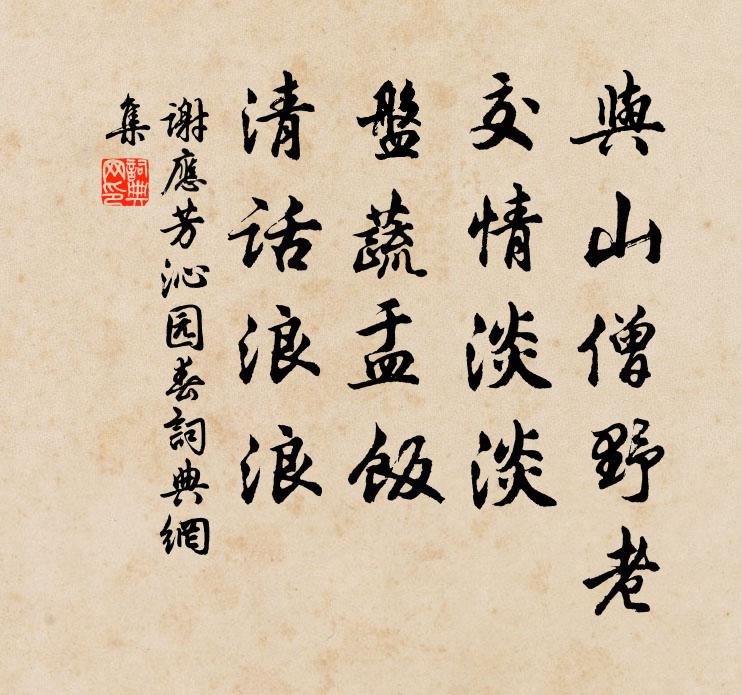 與山僧野老
交情淡淡
盤蔬盂飯
清話浪浪
謝應芳沁园春詞典網
集
詞典
网印